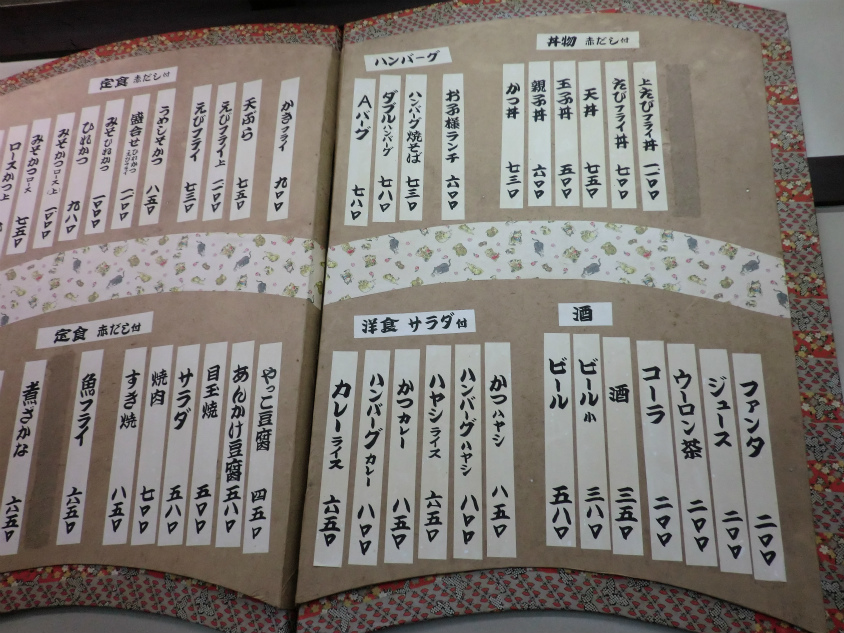 丼物 赤だし付
上えびフライ丼 一、一〇〇
えびフライ丼 七〇〇
天丼 七五〇
玉子丼 五〇〇
親子丼 六〇〇
かつ丼 七三〇
ハンバーグ
お子様ランチ 六〇〇
ハンバーグ焼そば 七三〇
ダブルハンバーグ 七八〇
Aバーグ 七八〇
定食 赤だし付
かきフライ 九〇〇
天ぷら 七五〇
えびフライ上
えびフライ 七三〇
うめしそかつ 八五〇
盛合せ ひれかつ えびフライ
みそひれかつ
ひれかつ
みそかつロース上 九八〇
みそかつロース
ロースかつ上 七五〇
酒
ファンタ 二〇〇
ジュース 二〇〇
ウーロン茶 二〇〇
コーラ 二〇〇
酒 三五〇
ビール小 三八〇
ビール 五八〇
洋食 サラダ付
かつハヤシ 八五〇
ハンバーグハヤシ 八〇〇
ハヤシライス 六五〇
かつカレー 八五〇
ハンバーグカレー 八〇〇
カレーライス 六五〇
定食 赤だし付
やっこ豆腐 四五〇
あんかけ豆腐 五八〇
目玉焼 五〇〇
サラダ 五八〇
焼肉 七〇〇
すき焼 八五〇
魚フライ 六五〇
煮さかな 六五〇